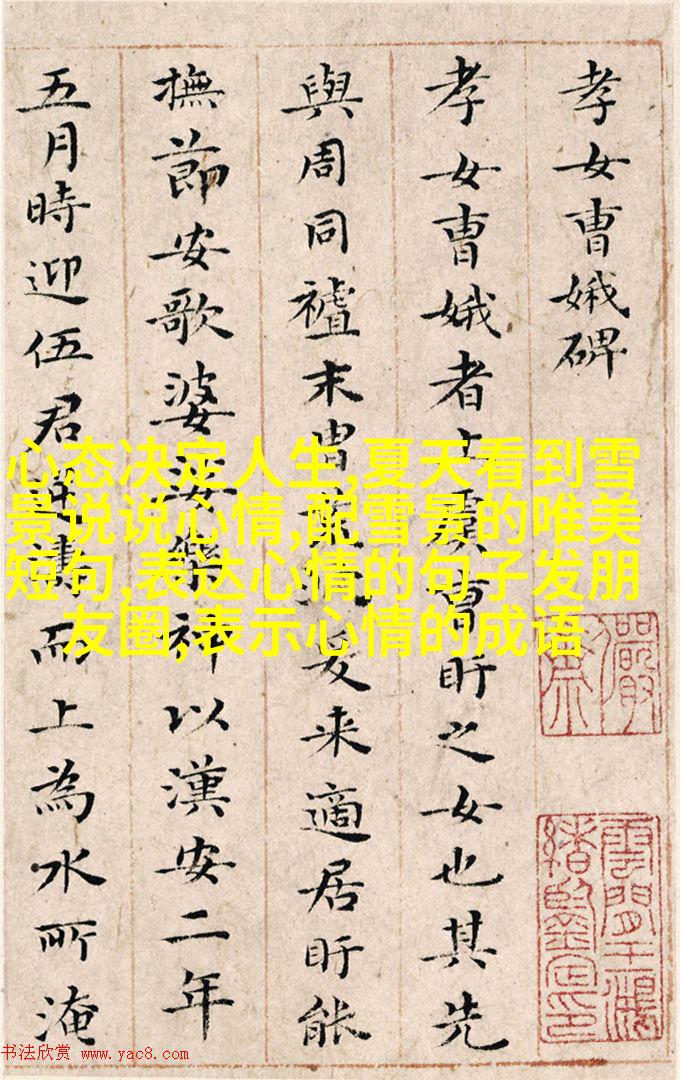 孝女曹娥碑
孝女曹娥者上虞曹盱之女也其先
與周同禮末胄爰来適居盱能
撫節安歌婆娑樂神以漢安二年
五月時迎伍君逆濤而上為水所淹
心态决定人生,夏天看到雪
景说说心情,配雪景的唯美
短句,表达心情的句子发朋
友圈,表示心情的成语
儼齋
雲間王鴻緒鑒定印
书法欣赏 www.yac8.com